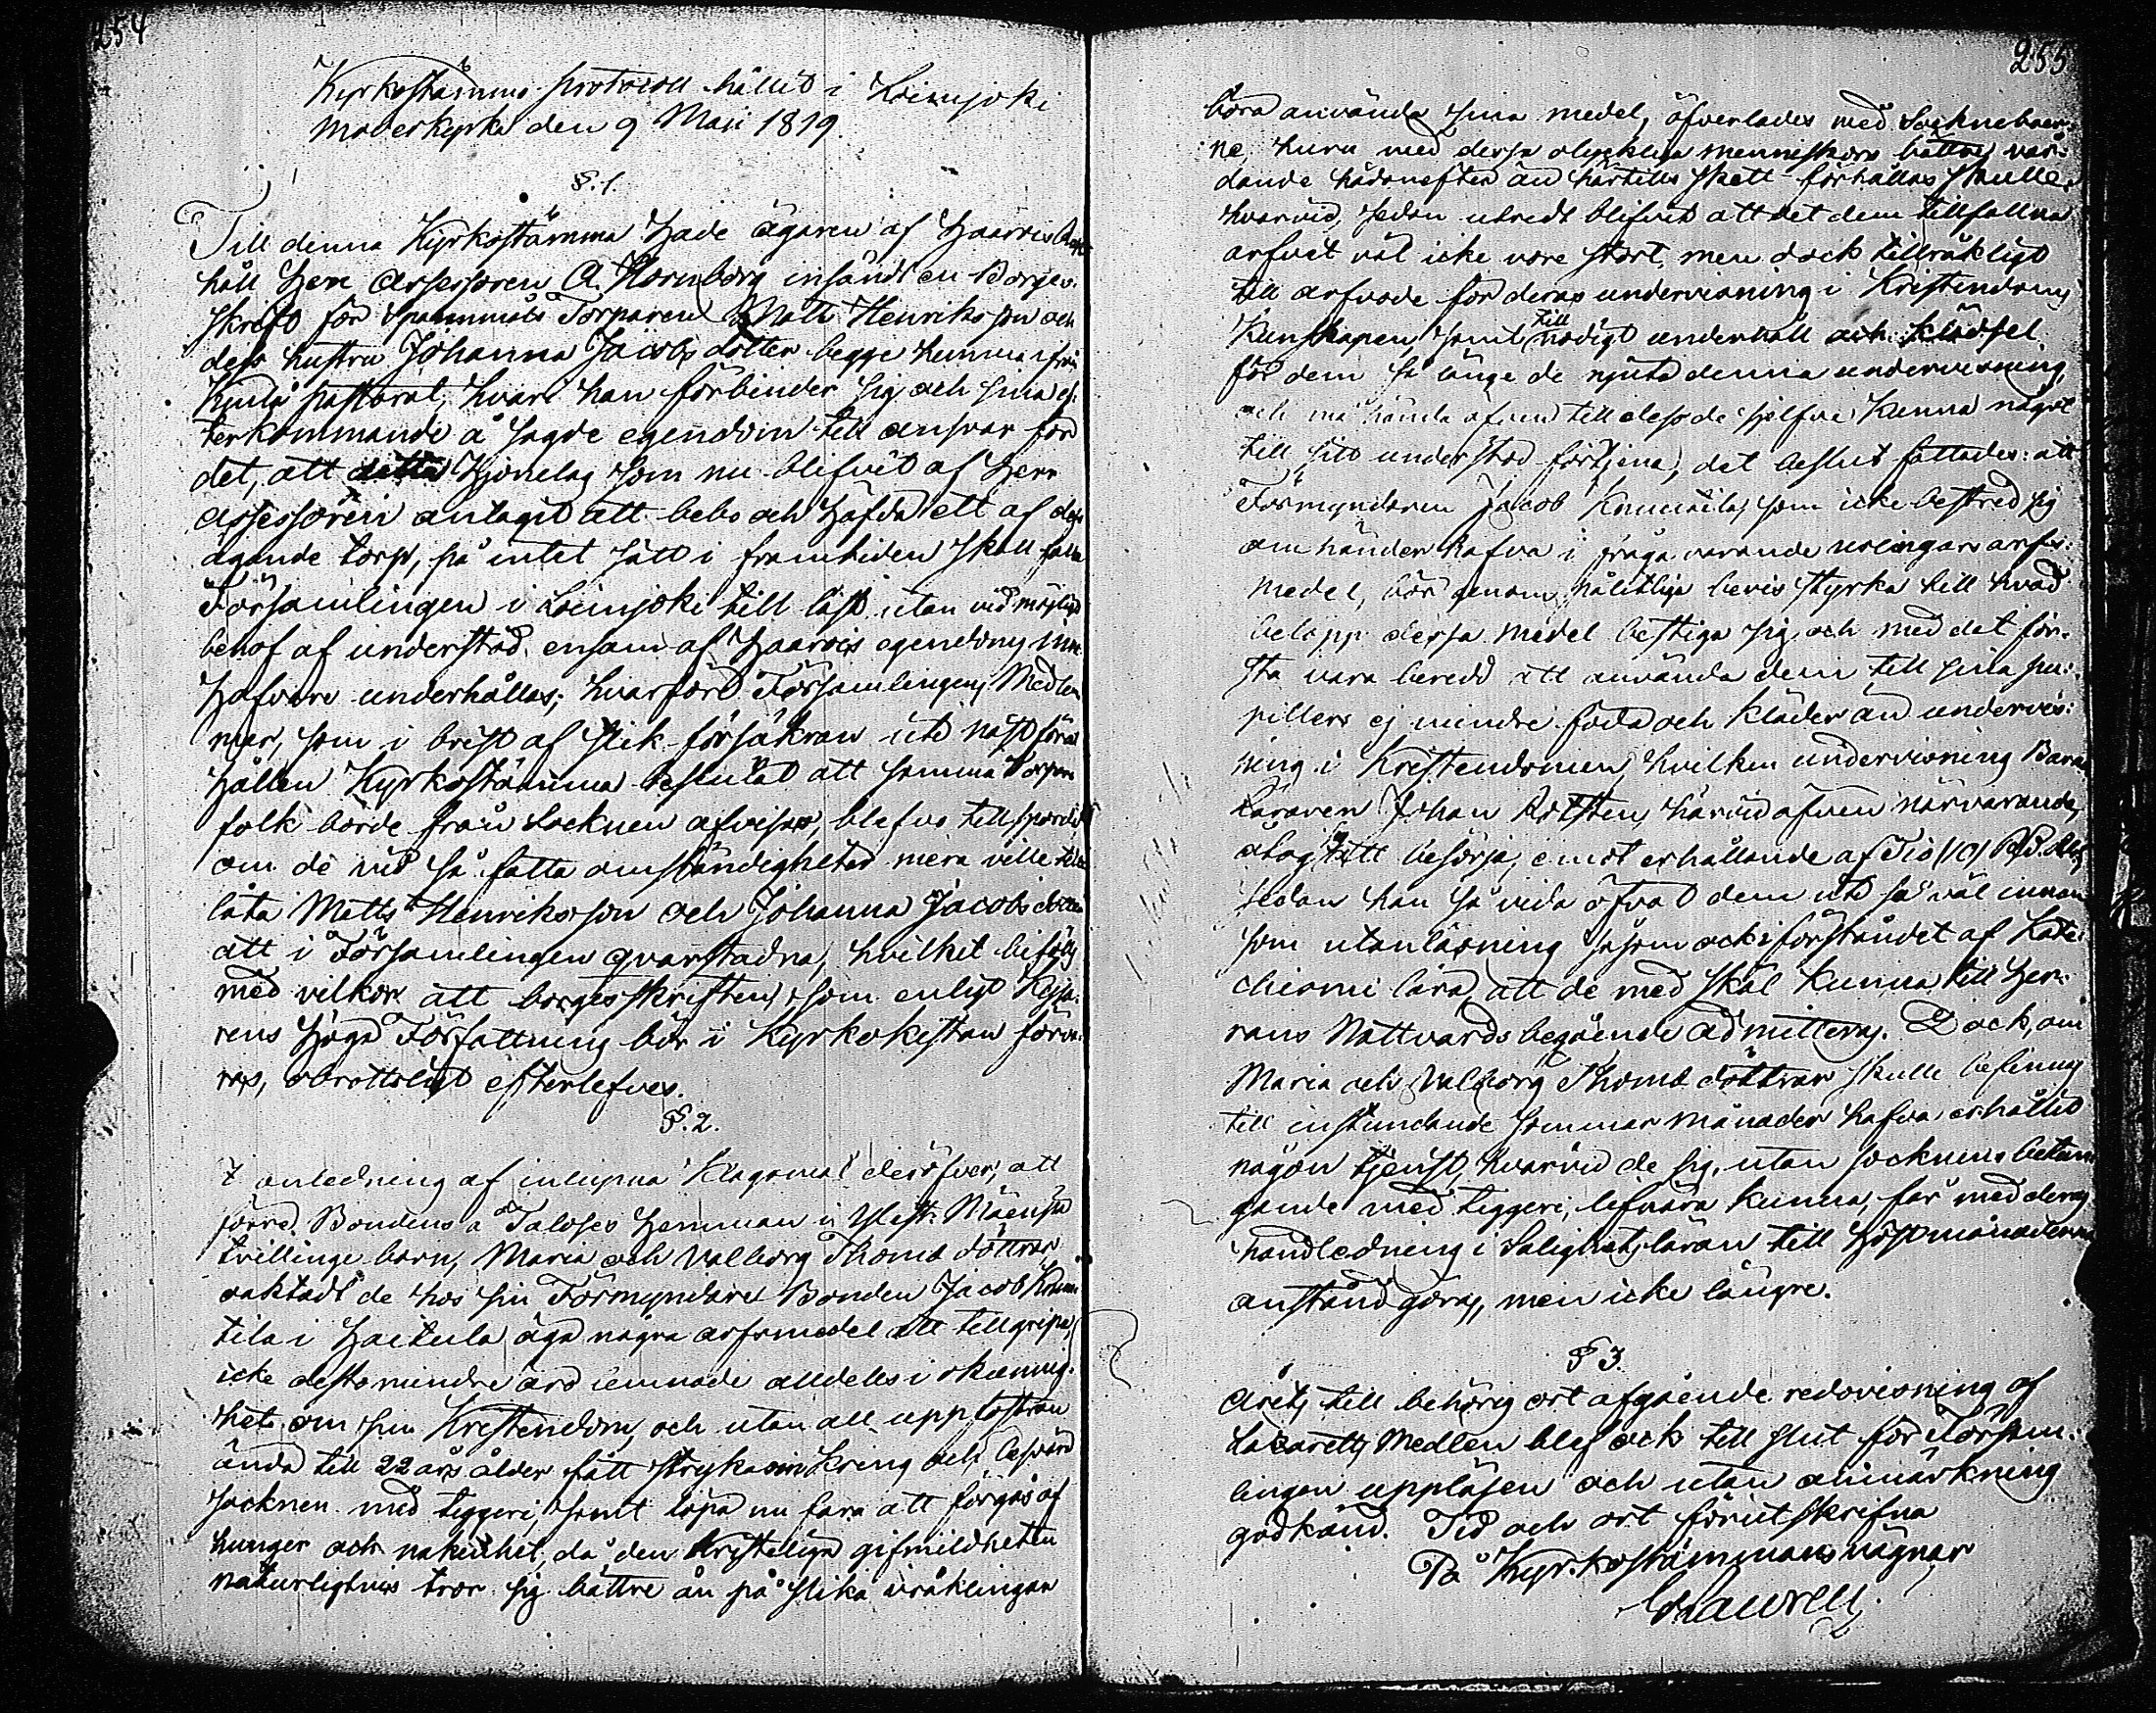 254
Kyrkostämmo protocoll hållit i Loimjoki
Moderkyrka den 9 Maii 1819.
§. 1.
Till denna Kyrkostämma hade ägaren af Haarvis
håll Herr Assessoren A. Hornborg insändt en Borgens-
skrift för Torparen Matts Henriksson och
dess hustru Johanna Jacobs dotter begge hemma ifrån
pastorat, hvari han förbinder sig och sina ef-
terkommande å sagde egendom till ansvar för
det, att detta Hjonelag som nu blifvit af Herr
Assessoren antagit att bebo och häfda ett af dess
ägande torp, på intet sätt i framtiden skall falla
Församlingen i Loimjoki till last utan vid möjligt
behof af understöd ensam af Haarvis egendoms inne-
hafvare underhållas; hvarföre Församlingens Medlem-
mar, som i brist af slik försäkran uti näst förut
hållen Kyrkostämma beslutat att samma Torpare
folk borde från Socknen afvisas, blefvo tillspordt
om de vid så fatta omständigheter mera ville till-
låta Matts Henriksson och Johanna Jacobs dotter
att i Församlingen qvarstadna, hvilket bifölls
med vilkor att borgesskriften, som enligt Kejsa-
rens höga Författning bör i Kyrkokistan förva-
ras, obrottsligt efterlefves.
§. 2.
I anledning af inlupna Klagomål deröfver, att
förre Bondens å Taloses Hemman i Mäenpä
tvillinge barn, Maria och Valborg Thomæ döttrar
oaktadt de hos sin Förmyndare Bonden Jacob Knuu-
tila i Haitula äga några arfsmedel att tillgripa,
icke desto mindre äro lemnade alldeles i okunnig-
het om sin Kristendom, och utan all uppfostran
ända till 22 års ålder fått stryka omkring och besvära
socknen med tiggeri, samt löpa nu fara att förgås af
hunger och nakenhet, då den kristeliga gifmildheten
naturligtvis tror sig bättre än på slika uslingar
255
böra använda sina medel, öfverlades med Socknebor-
ne, huru med dessa olyckliga menniskors bättre vår-
dande hädanefter än härtills skett förhållas skulle.
hvarvid, sedan utredt blifvit att det dem tillfallna
arfvet väl icke vore stort, men dock tillräkligt
till arfvode för deras undervisning i Kristendoms
Kunskapen, samt till nödigt underhåll och klädsel
för dem så länge de njuta denna undervisning,
och må hända äfven till dess de sjelfve kunna något
till sitt understöd förtjena, det beslut fattades: att
Förmyndaren Jacob Knuutila, som icke bestred sig
om händer hafva i fråga varande uslingars arfs-
medel, bör genom pålitliga bevis styrka till hvad
belopp dessa medel bestiga sig och med det för-
sta vara beredd att använda dem till sina pu-
pillers ej mindre föda och kläder än undervis-
ning i Kristendomen, hvilken undervisning Barna
läraren Johan härvid äfven närvarande,
åtog sig att besörja, emot erhållande af Tio (10) R:B.
sedan han så vida öfvat dem uti så väl innan
som utanläsning såsom ock i förståndet af Kate-
chismi lära, att de med skäl kunna till Her-
rans Nattvards begående admitteras. Dock, om
Maria och Valborg Thomæ döttrar skulle befinnas
till instundande sommar månader hafva erhållit
någon tjenst, hvarvid de sig, utan socknens betun-
gande med tiggeri, lifnära kunna, får med deras
handledning i Salighetsläran till Höstmånaderna
anstånd göras, men icke längre.
§ 3.
Årets till behörig ort afgående redovisning af
Lazaretts Medlen blef ock till slut för Försam-
lingen uppläsen och utan anmärkning
godkänd. Tid och ort förut skrifna
På Kyrkostämmans vägnar